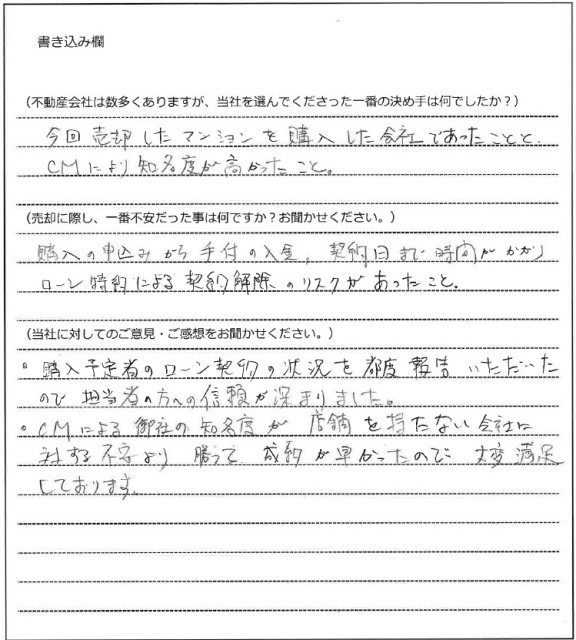 書き込み欄
（不動産会社は数多くありますが、当社を選んでくださった一番の決め手は何でしたか？）
今回売却したマンションを購入した会社であったことと、
CMにより知名度が高かったこと。
（売却に際し、一番不安だった事は何ですか？お聞かせください。）
購入の申込みから手付の入金、契約日まで時間がかかり
ローン特約による契約解除のリスクがあったこと。
（当社に対してのご意見・ご感想をお聞かせください。）
• 購入予定者のローン契約の状況を都度報告いただいた
ので担当者の方への信頼が深まりました。
• CMによる御社の知名度が店舗を持たない会社に
対する不安より勝って成約が早かったので大変満足
しております。